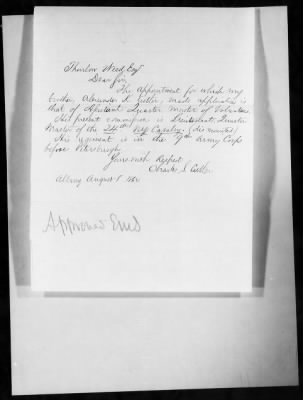 Thurlow Weed, Esq
Dear Sir,
The appointment for which my
brother, Alexander D. Cutler, made application is
that of Assistant Quarter Master of Volunteers
His present commission is Lieutenant, Quarter
Master of the 24th N.Y. Cavalry (dismounted)
His regiment is in the 9th Army Corps
before Petersburgh.
Yours with Respect
Charles S. Cutler
Albany August 8
Approved